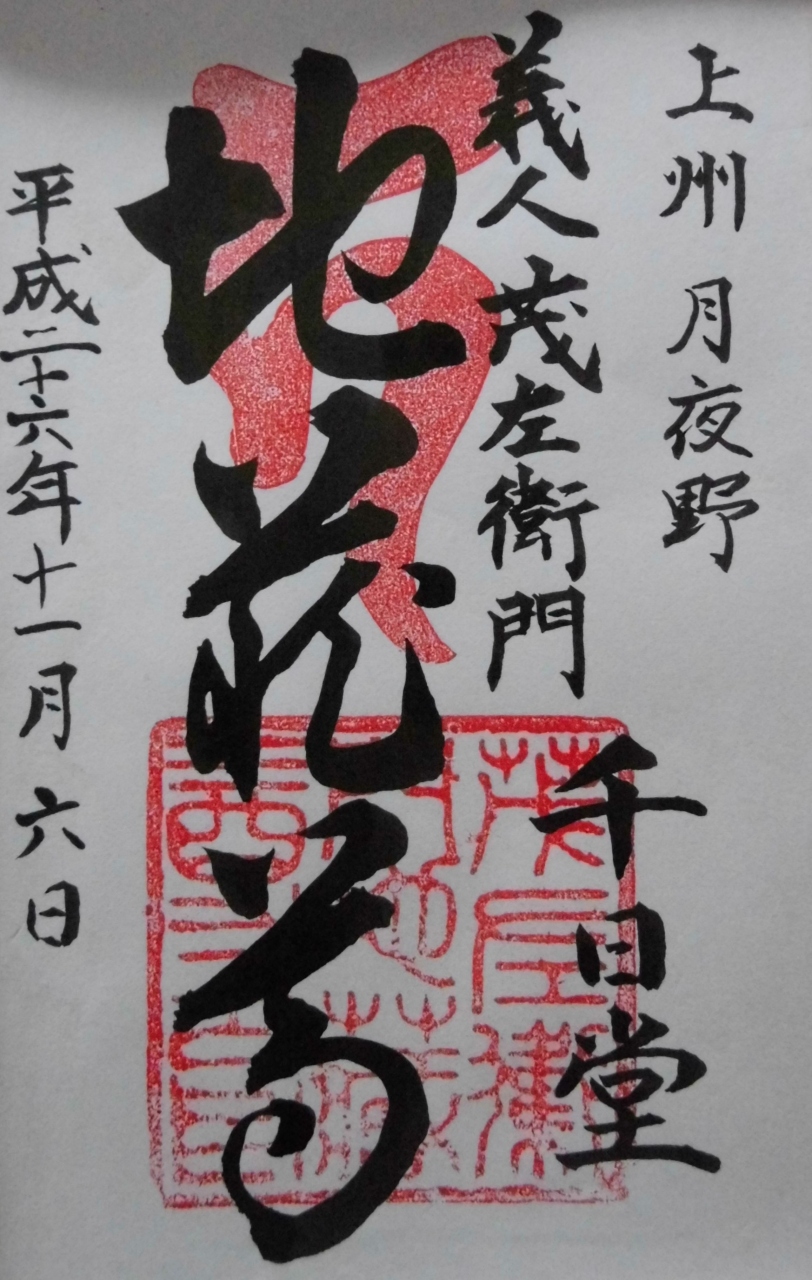 上州 月夜野
義人 茂左衛門
千日堂
地蔵尊
平成二十六年十一月六日